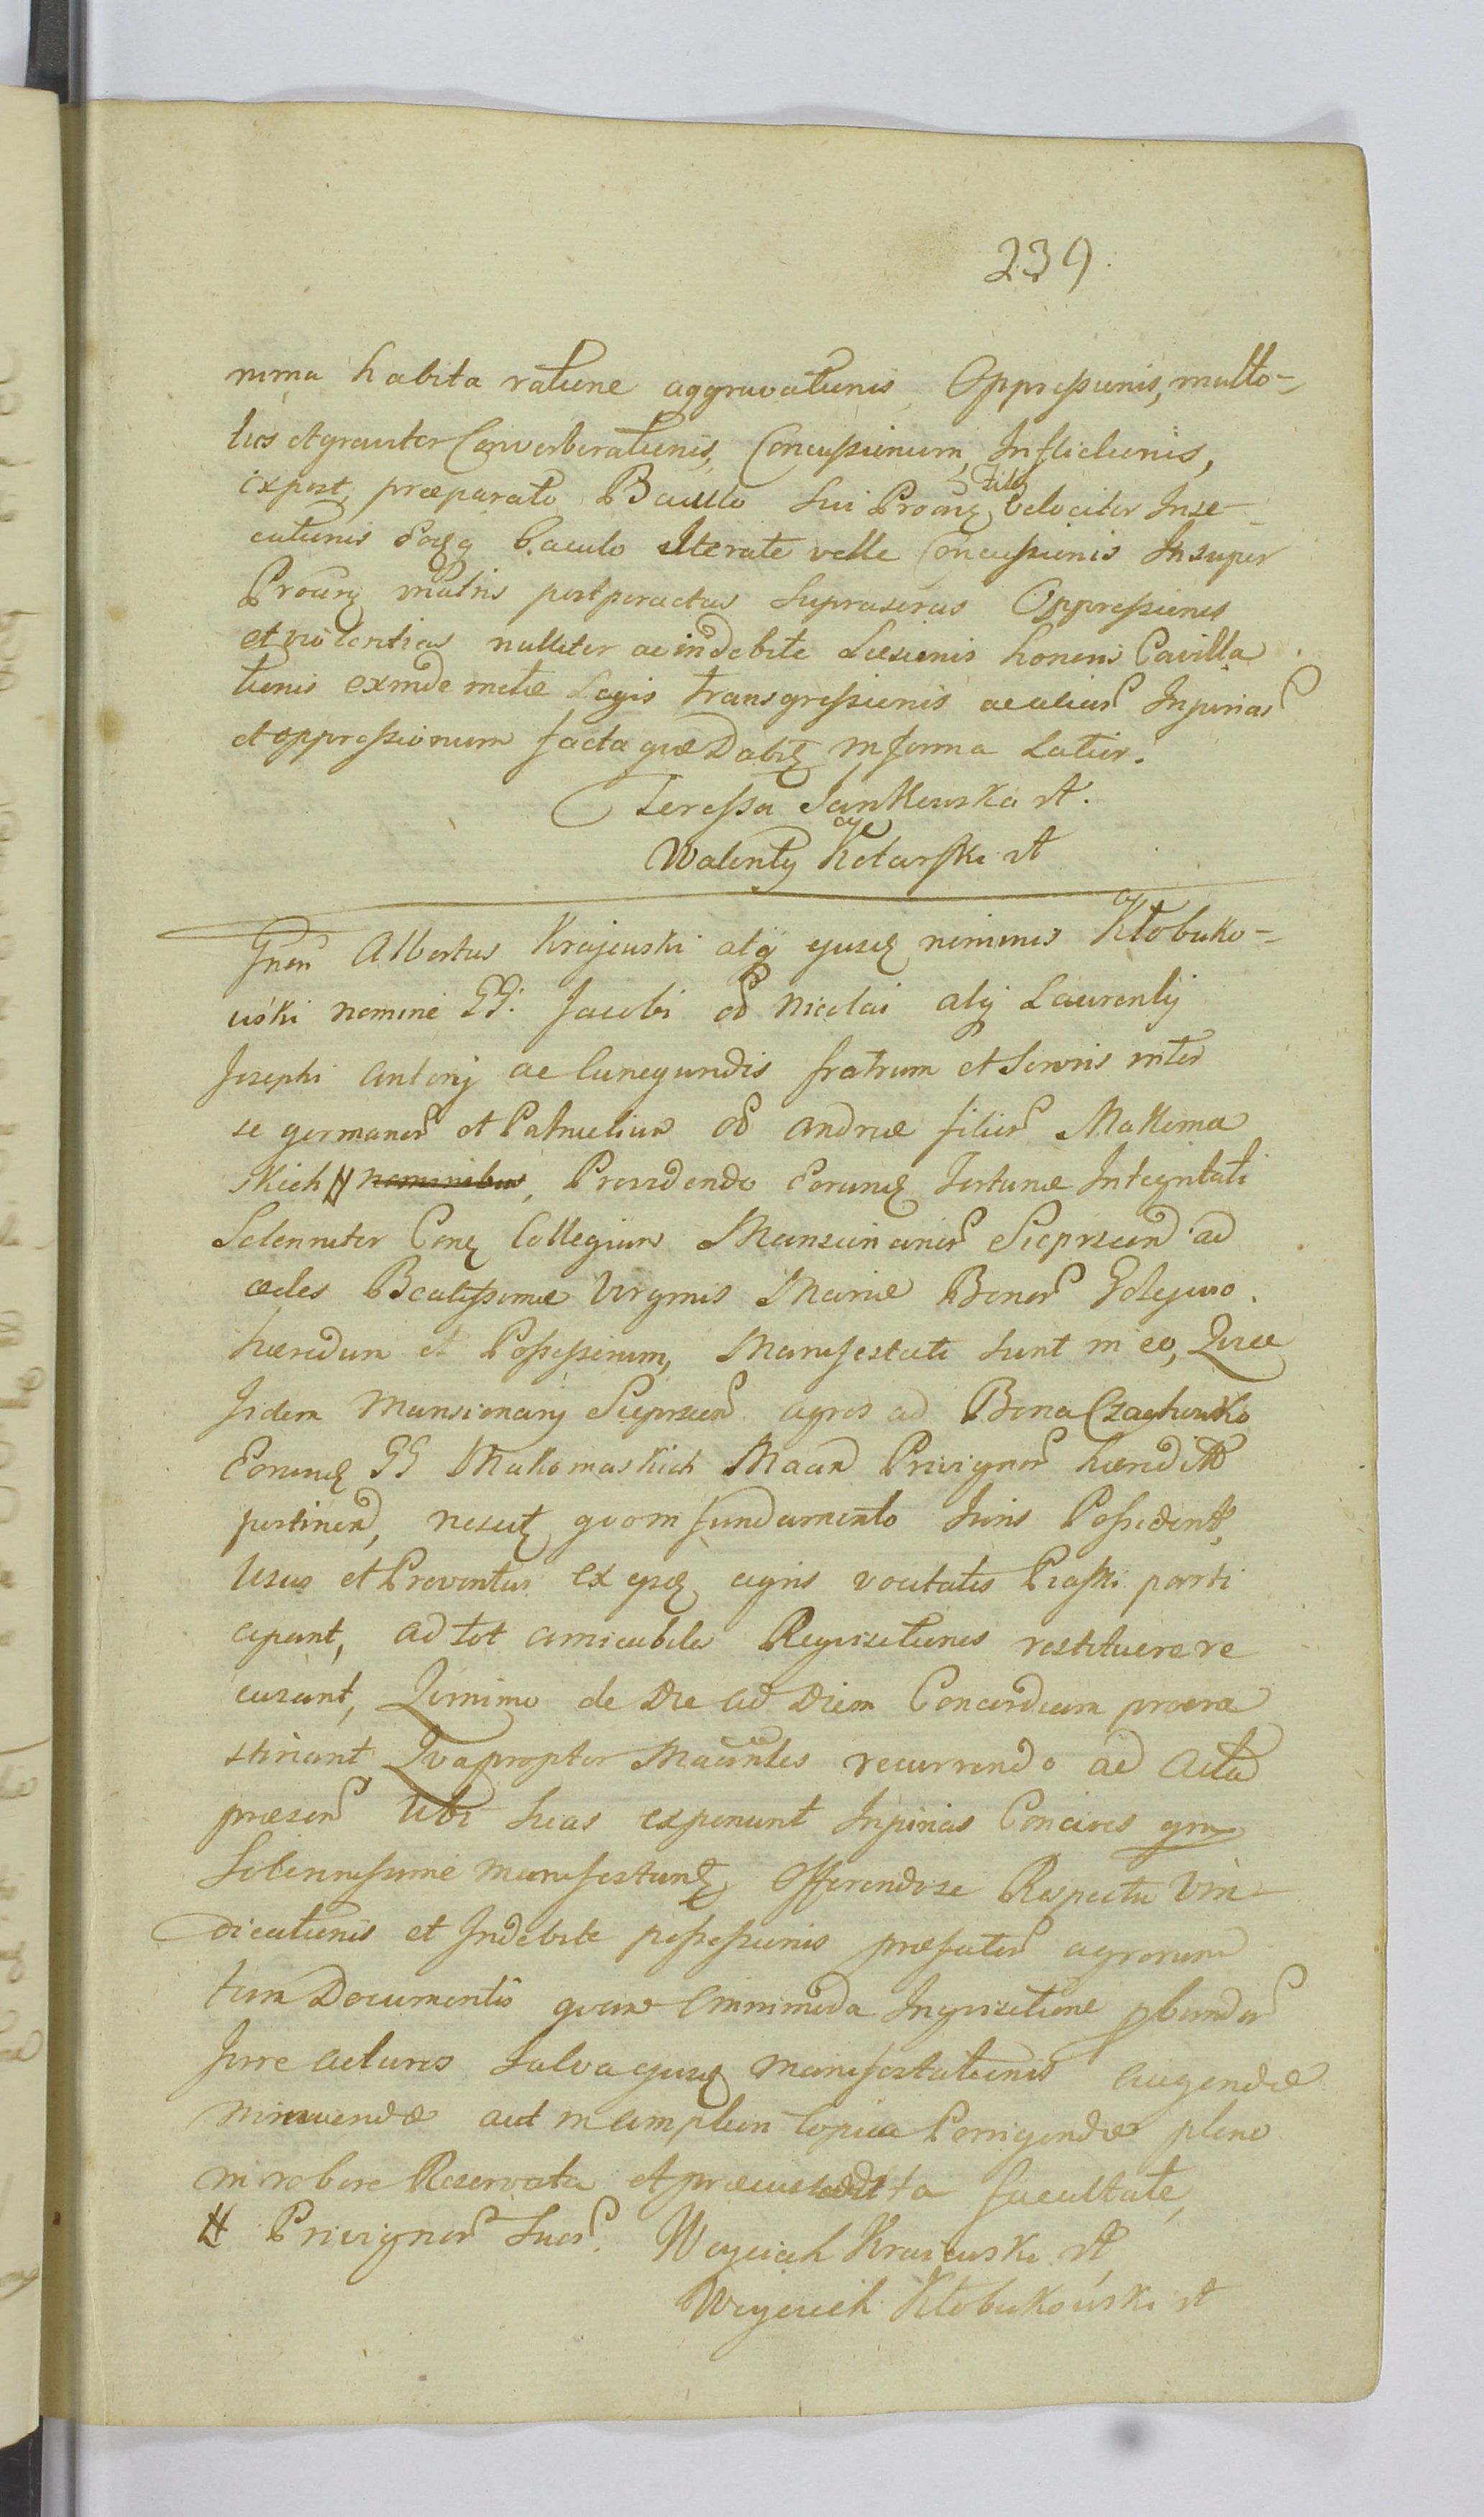 239.
nima habita ratione aggravationis, Oppressionis, multo-
ties et graviter Converberationis, Concussionum, Inflictionis,
expost, præparato Baculo sui Proãnz Filij velociter Inse-
cutionis Eoqz baculo Iterate velle Concussionis Insuper
Proãnz matris post peractas supraseras Oppressiones
et violentias nulliter ac indebite Læsionis honoris Cavilla
tionis exinde metæ Legis transgressionis ac aliar Injuriar
et oppressionum facta quæ Dabitz in forma Latior.
Teressa Jankowska st.
Walenty Kotarski st
Gnosi Albertus Krajewski atqz ejusdz nominis Kłobuko-
wski nomine GG. Jacobi od Nicolai alij Laurentij
Josephi Antonij ac Cunegundis fratrum et Sororis inter
se germanor et Patruelium od Andreæ filior Makoma
skich # nominibus, Providendo Eorundz Fortunæ Integritati
Solenniter Conz Collegium Mansionarior Sieprscen ad
ædes Beatissimæ Virginis Mariæ Bonor Golejewo
hæredum et Possessorum, Manifestati sunt in eo, Quia
Iidem Mansionarij Sieprscen agros ad Bona Czachowko
Eorundz GG Makomaskich Maan Privignor hæreditt
pertinen, nescitz quo in fundamento Juris Possident,
Usus et Proventus ex ijsdz agris vocitatis Piaski parti
cipant, ad tot amicabiles Requisitiones restituere re
cusant, Quinimo de Die ad Diem Concordiam procra
stinant Qvapropter Maãntes recurrendo ad Acta
præsen Ubi suas exponunt Injurias Concives gnr
Solennissime manifestantz, Offerendo se Respectu Vin-
dicationis et Indebite possessionis præfator agrorum
tum Documentis quam Omnimoda Inquisitione pbandor
Jure acturos salva ejusdz manifestationis augendæ
minuendæ aut in amplior copia Porrigendæ pleno
in robore Reservata et præcustodita facultate
# Privignor Suor. Woyciech Kraiewski st
Woyciech Kłobukowski st